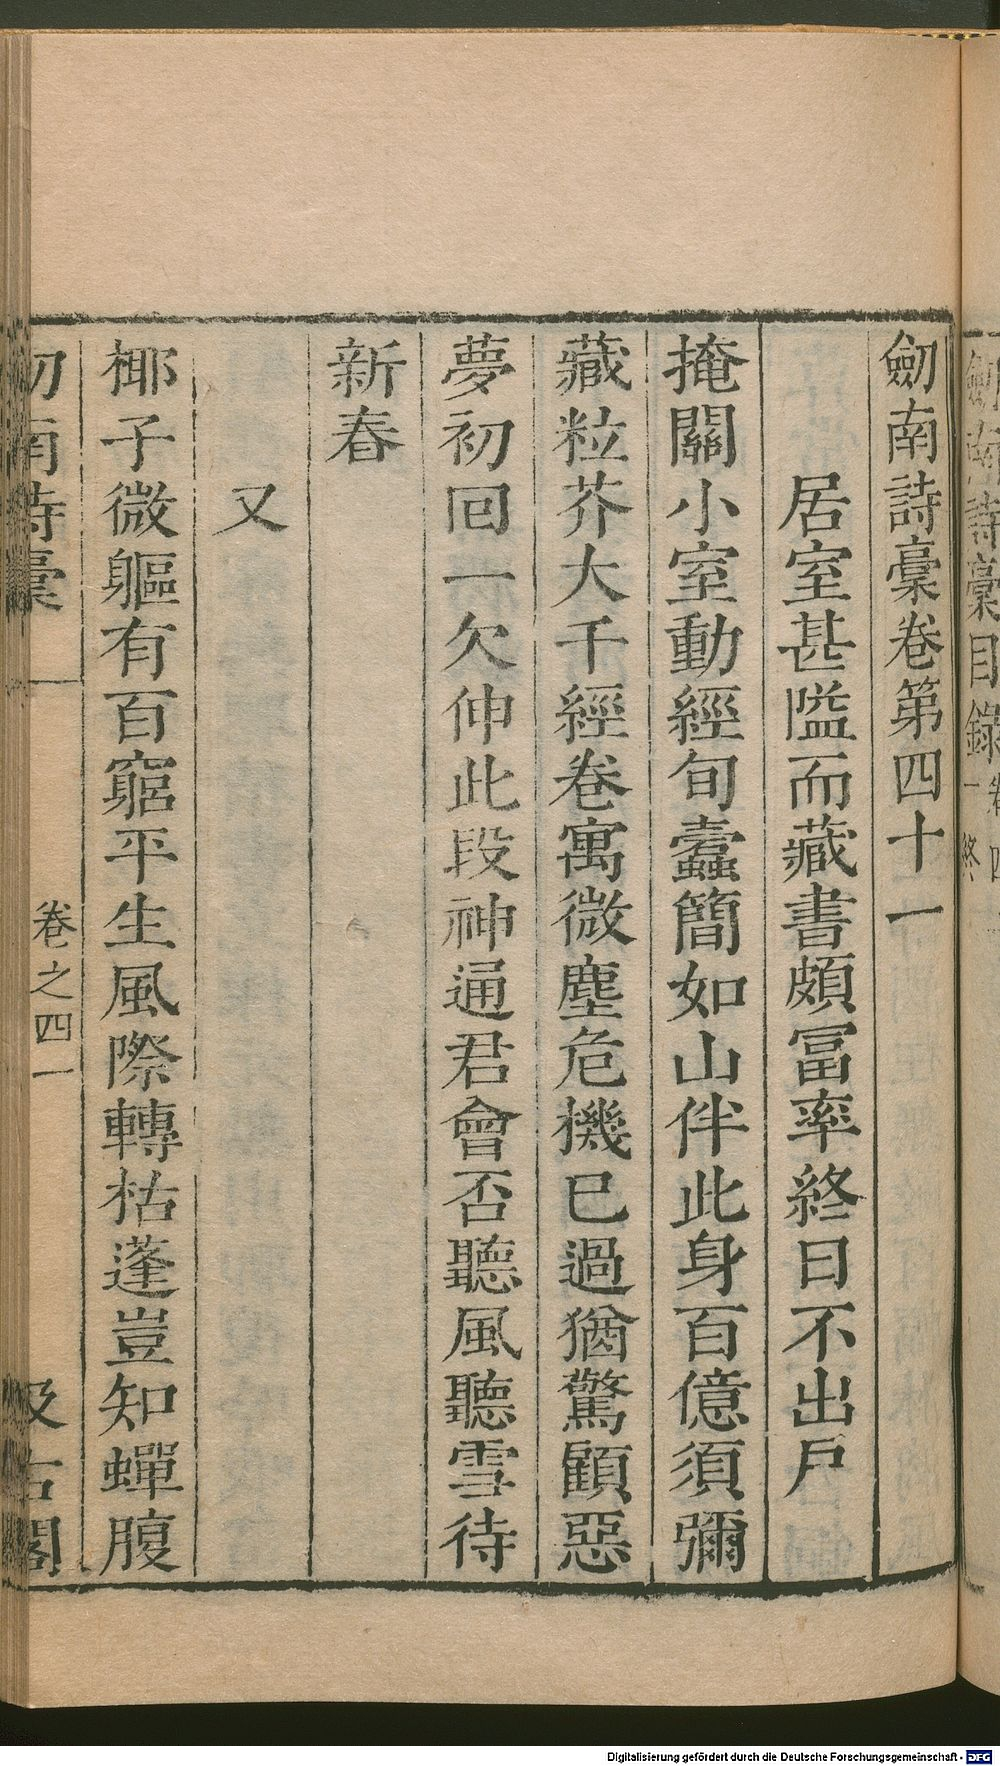 劒南詩稾目錄卷四十一終
劒南詩稾卷第四十一
居室甚隘而藏書頗富率終日不出戶
掩關小室動經旬蠹簡如山伴此身百億須彌
藏粒芥大千經卷寓微塵危機已過猶驚顧惡
夢初回一欠伸此段神通君會否聽風聽雪待
新春
又
椰子微軀有百窮平生風際轉枯蓬豈知蟬腹
劒南詩稾 卷之四一 汲古閣
Digitalisierung gefördert durch die Deutsche Forschungsgemeinschaft - DFG